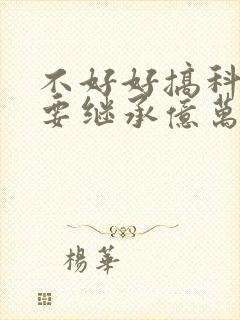 不好好搞科
要继承億萬
楊華